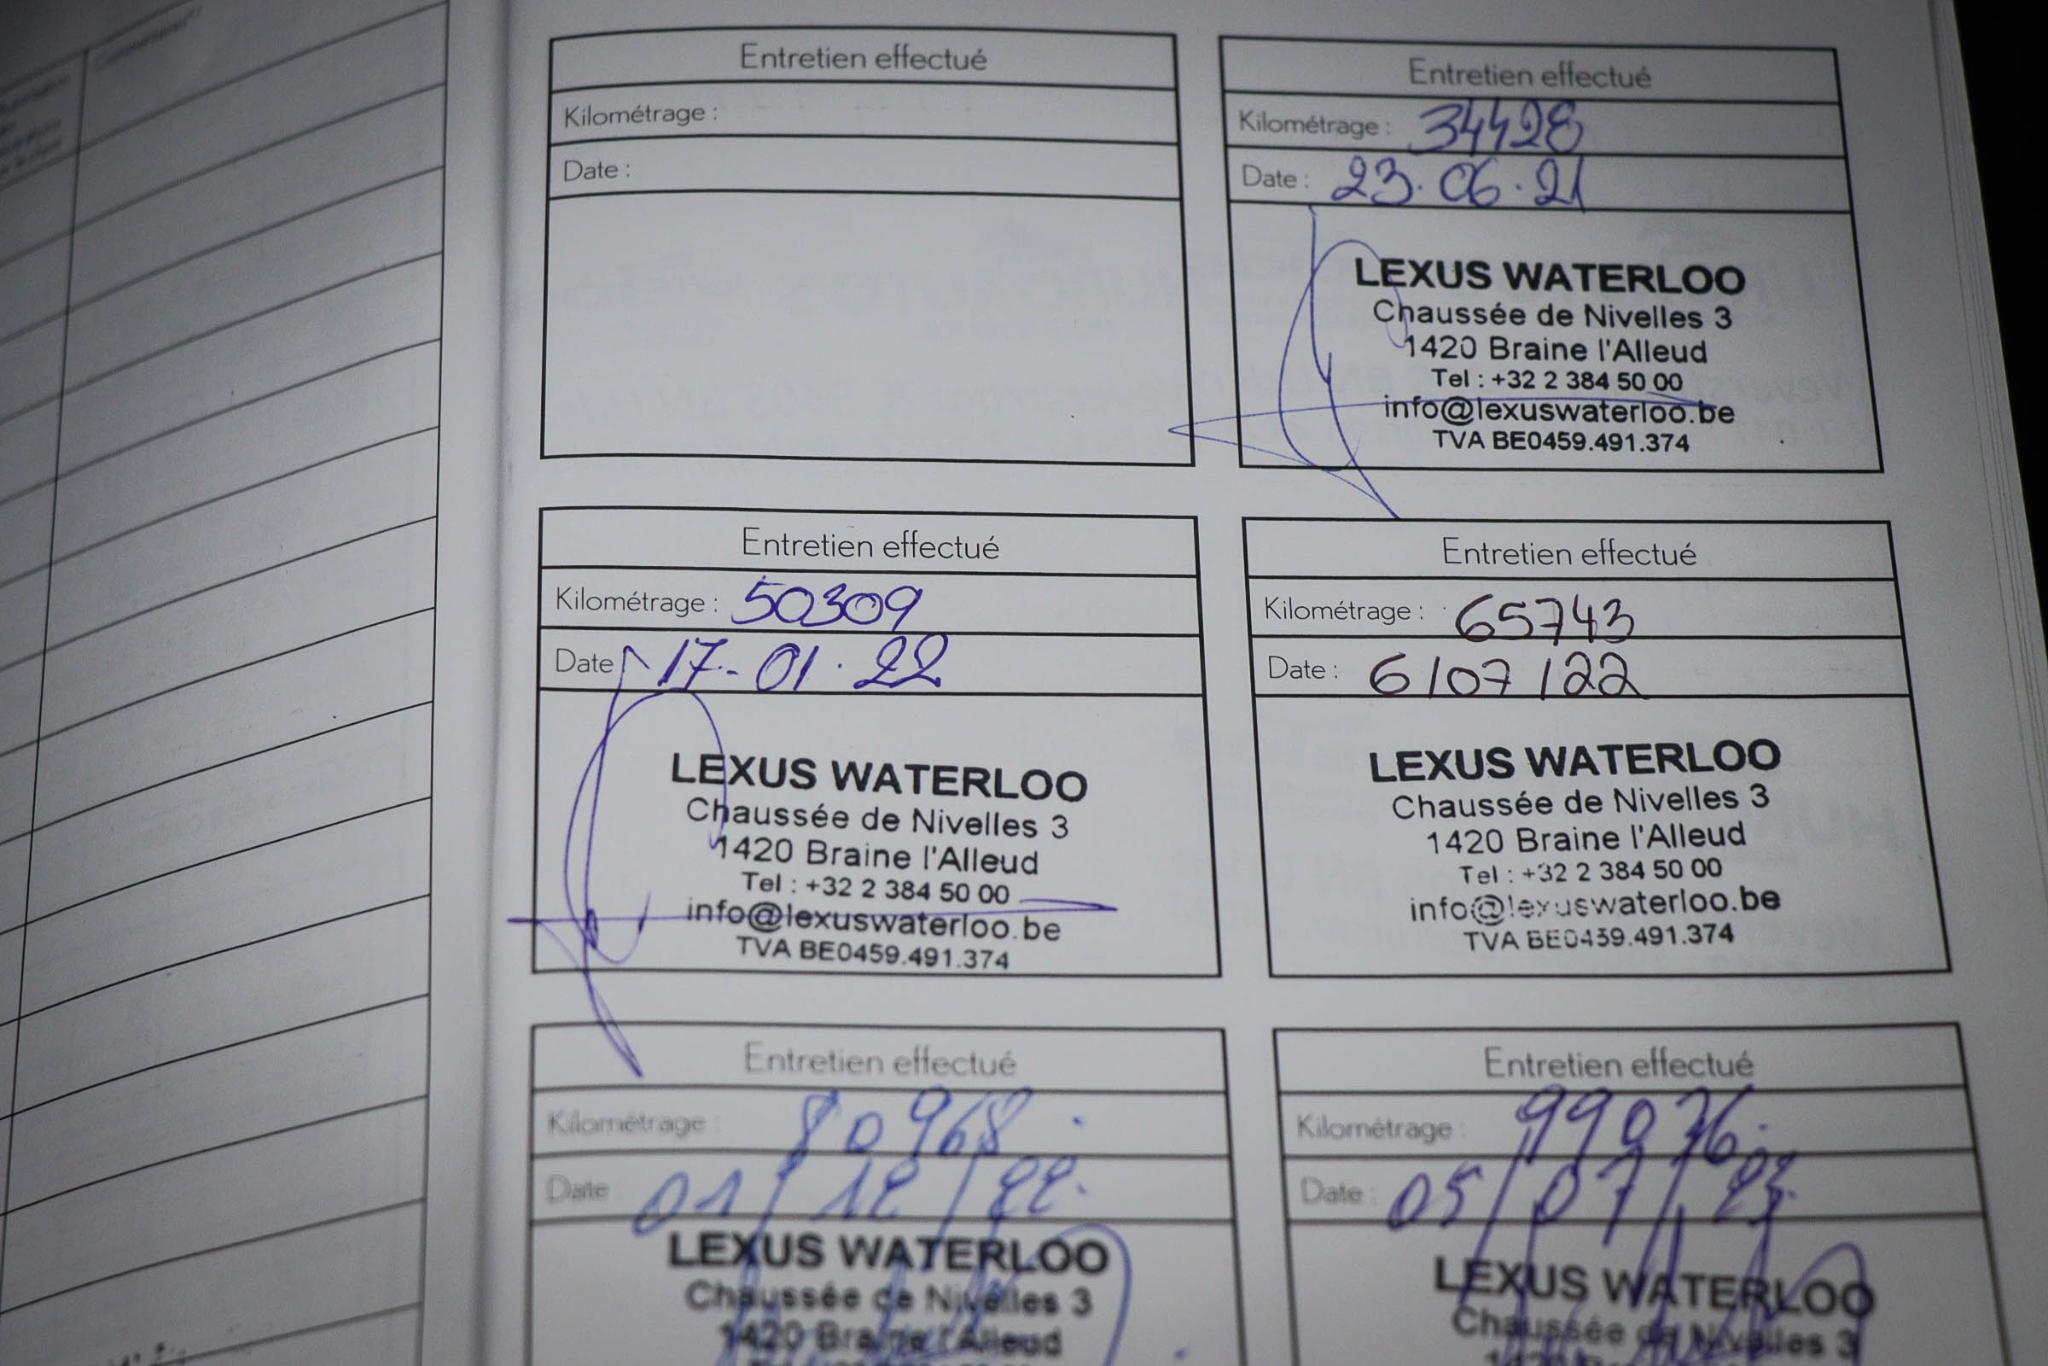 Entretien effectué
Kilométrage :
Date :
Entretien effectué
Kilométrage : 34428
Date : 23.06.21
LEXUS WATERLOO
Chaussée de Nivelles 3
1420 Braine l'Alleud
Tel : +32 2 384 50 00
info@lexuswaterloo.be
TVA BE0459.491.374
Entretien effectué
Kilométrage : 50309
Date 17-01.22
LEXUS WATERLOO
Chaussée de Nivelles 3
1420 Braine l'Alleud
Tel : +32 2 384 50 00
info@lexuswaterloo.be
TVA BE0459.491.374
Entretien effectué
Kilométrage : 65743
Date : 6/07/22
LEXUS WATERLOO
Chaussée de Nivelles 3
1420 Braine l'Alleud
Tel : +32 2 384 50 00
info@lexuswaterloo.be
TVA BE0459.491.374
Entretien effectué
Kilométrage : 80968.
Date 01/12/22.
LEXUS WATERLOO
Chaussée de Nivelles 3
1420 Braine l'Alleud
Entretien effectué
Kilométrage : 99076.
Date : 05/07/23.
LEXUS WATERLOO
Chaussée de Nivelles 3